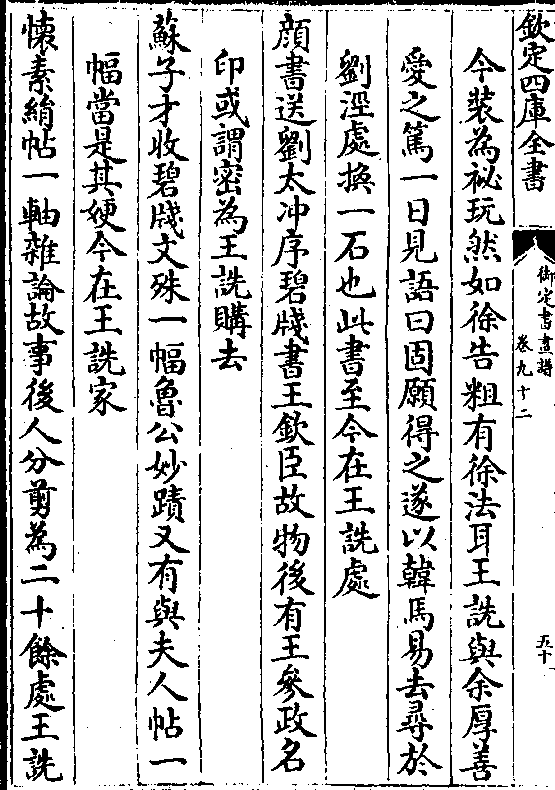 欽定四庫全書
御定書畫譜
卷九十二
五十
今裝為祕玩然如徐告粗有徐法耳王詵與余厚善
愛之篤一日見語曰固願得之遂以韓馬易去尋於
劉涇處換一石也此書至今在王詵處
顔書送劉太冲序碧牋書王欽臣故物後有王參政名
印或謂密為王詵購去
蘇子才收碧牋文殊一幅魯公妙蹟又有與夫人帖一
幅當是其㛐今在王詵家
懐素絹帖一軸雜論故事後人分剪為二十餘處王詵